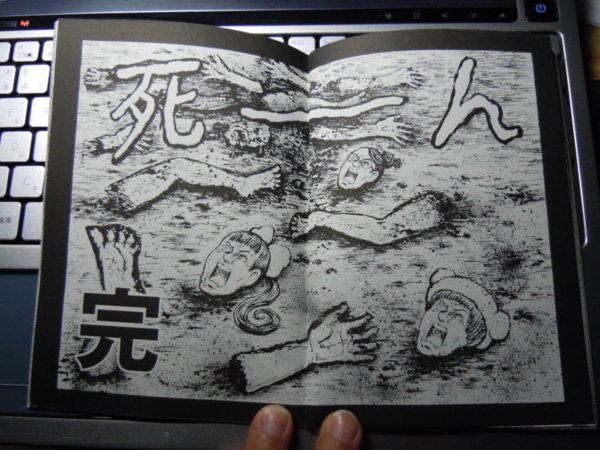 死ーん
完